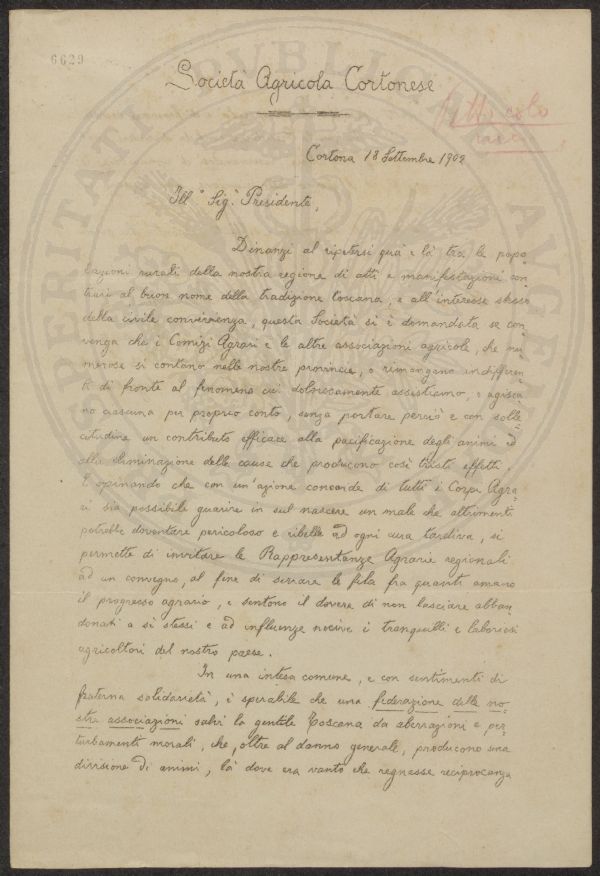 6629
Società Agricola Cortonese
Cortona 18 Settembre 1902
Ill.º Sig.r Presidente,
Dinanzi al ripetersi quà e là tra le popo
lazioni rurali della nostra regione di atti e manifestazioni con
trari al buon nome della tradizione toscana, e all'interesse stesso
della civile convivenza, questa Società si è domandata se con
venga che i Comizi Agrari e le altre associazioni agricole, che nu
merose si contano nelle nostre provincie, o rimangano indifferen
ti di fronte al fenomeno cui dolorosamente assistiamo, o agisca
no ciascuna per proprio conto, senza portare perciò e con solle
citudine un contributo efficace alla pacificazione degli animi ed
alla eliminazione delle cause che producono così tristi effetti.
E opinando che con un'azione concorde di tutti i Corpi Agra
ri sia possibile guarire in sul nascere un male che altrimenti
potrebbe diventare pericoloso e ribelle ad ogni cura tardiva, si
permette di invitare le Rappresentanze Agrarie regionali
ad un convegno, al fine di serrare le fila fra quanti amano
il progresso agrario, e sentono il dovere di non lasciare abban
donati a sì stessi e ad influenze nocive i tranquilli e laboriosi
agricoltori del nostro paese.
In una intesa comune, e con sentimenti di
fraterna solidarietà, è sperabile che una federazione delle no
stre associazioni salvi la gentile Toscana da aberrazioni e per
turbamenti morali, che, oltre al danno generale, producono una
divisione di animi, là dove era vanto che regnasse reciprocanza